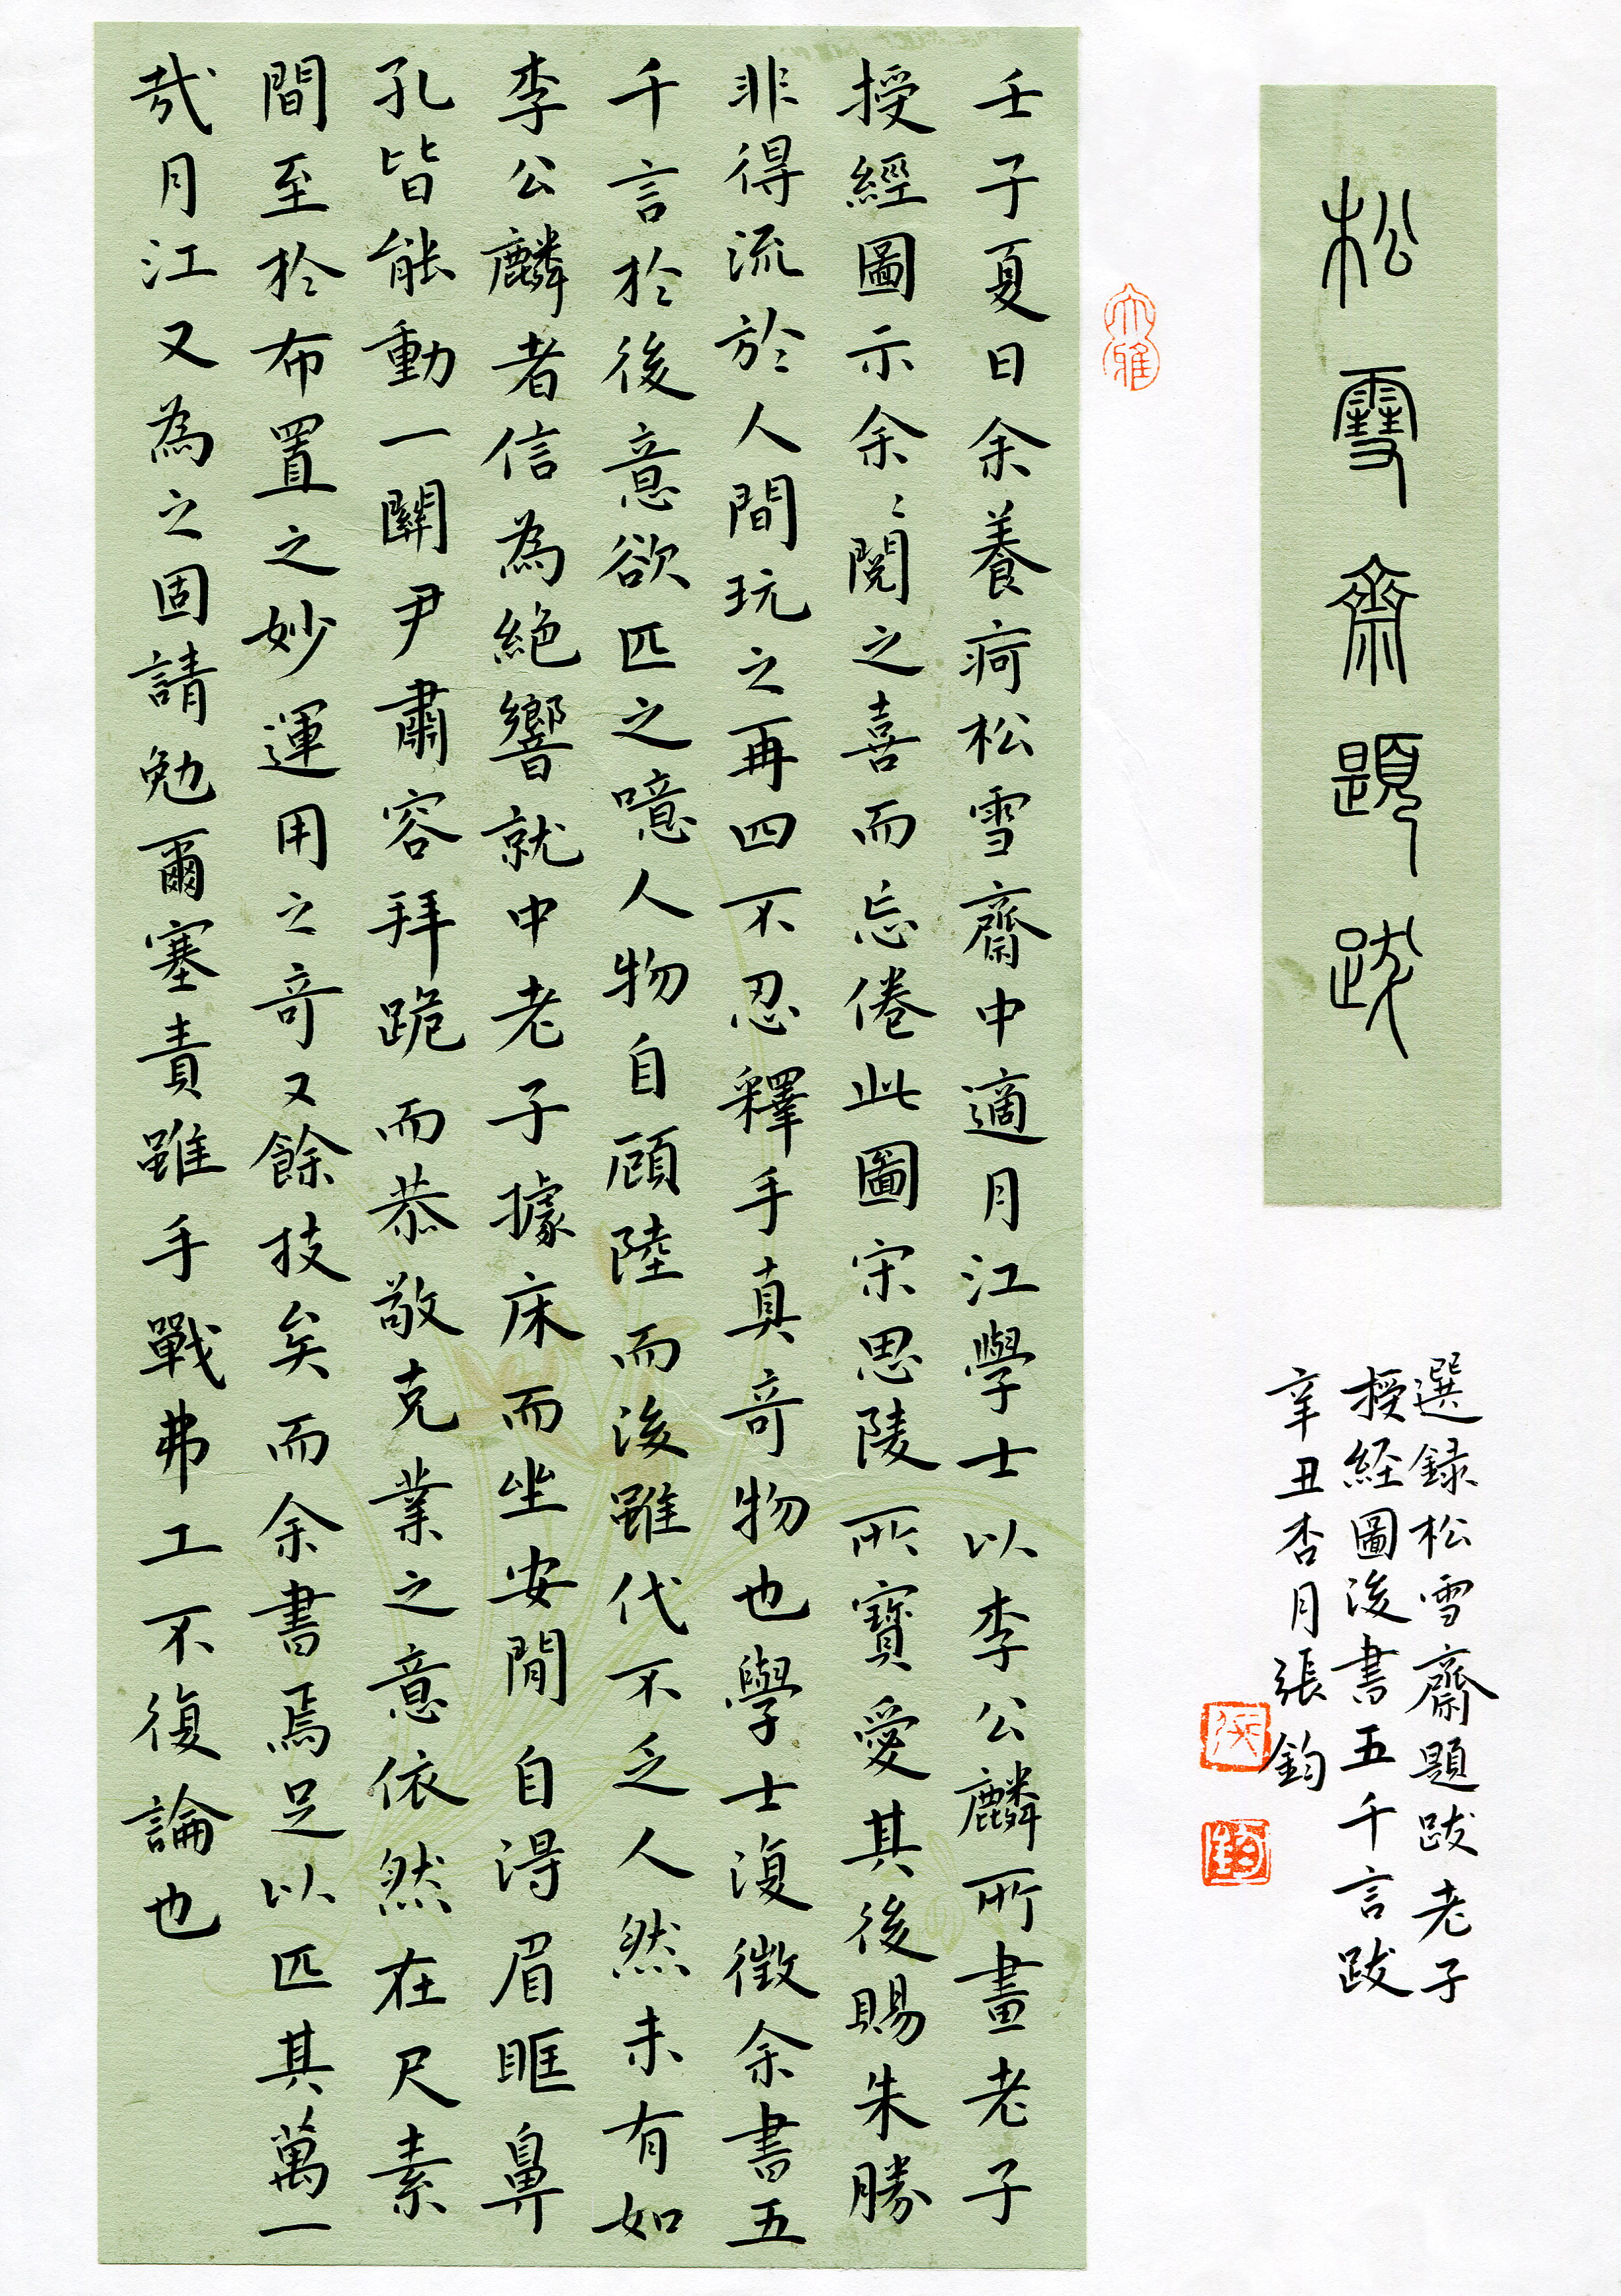 松雪齋題跋
選録松雪齋題跋老子
授経圖後書五千言跋
辛丑杏月張鈞
大雅
壬子夏日余養疴松雪齋中適月江學士以李公麟所畫老子
授經圖示余〻閱之喜而忘倦此圖宋思陵所寶愛其後賜朱勝
非得流於人間玩之再四不忍釋手真奇物也學士復徵余書五
千言於後意欲匹之噫人物自顧陸而後雖代不乏人然未有如
李公麟者信為絕響就中老子據床而坐安閒自得眉眶鼻
孔皆能動一關尹肅容拜跪而恭敬克業之意依然在尺素
間至於布置之妙運用之奇又餘技矣而余書焉足以匹其萬一
哉月江又為之固請勉爾塞責雖手戰弗工不復論也